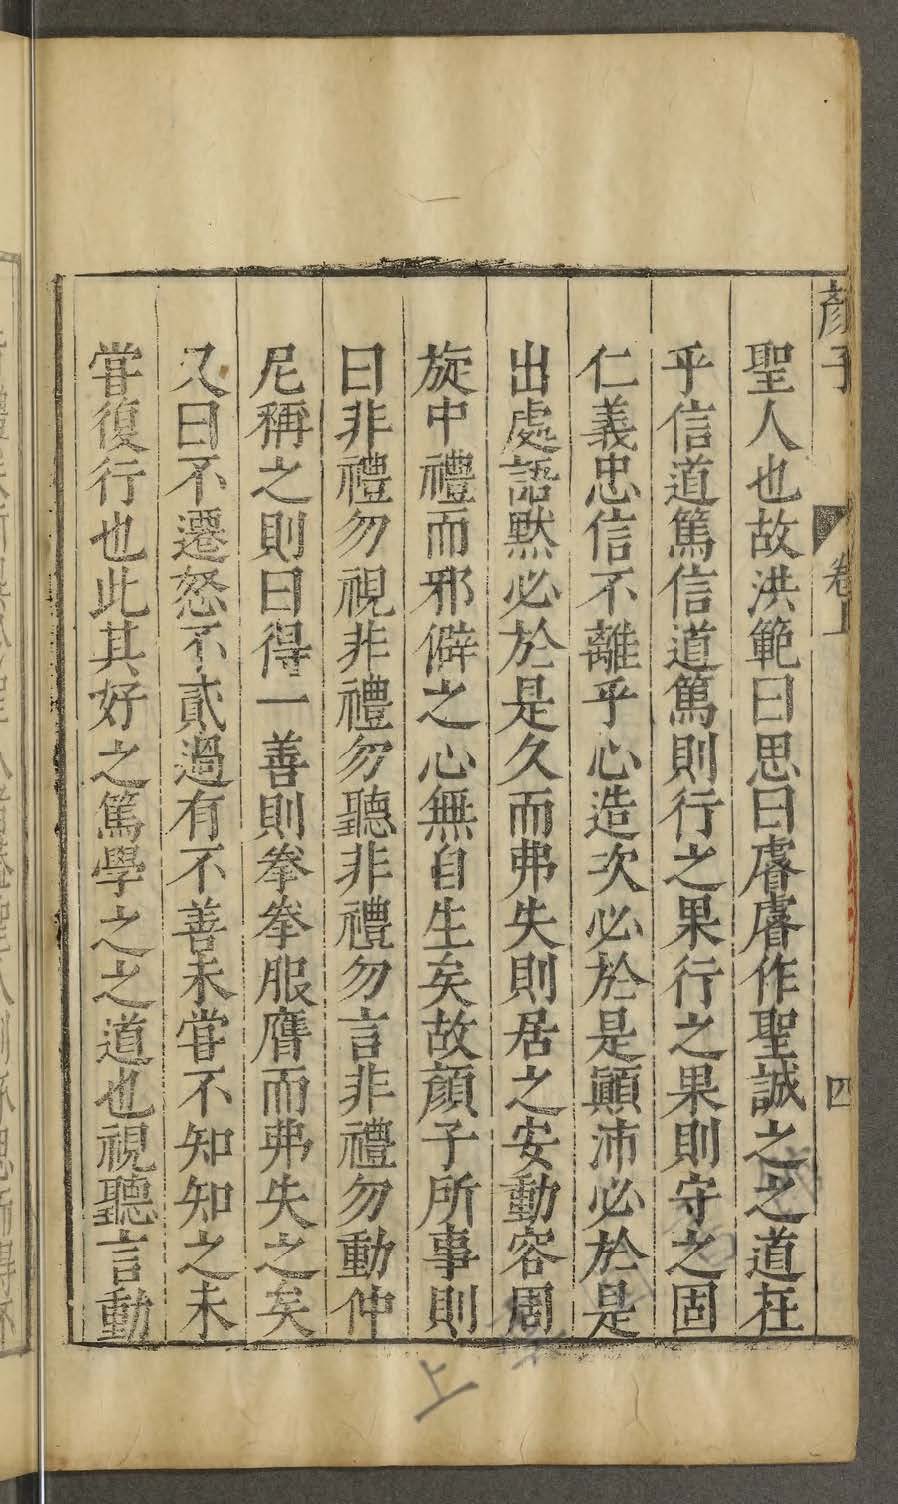 顏子 卷上 四
聖人也故洪範曰思曰睿睿作聖誠之之道在
乎信道篤信道篤則行之果行之果則守之固
仁義忠信不離乎心造次必於是顚沛必於是
出處語默必於是久而弗失則居之安動容周
旋中禮而邪僻之心無自生矣故顔子所事則
曰非禮勿視非禮勿聽非禮勿言非禮勿動仲
尼稱之則曰得一善則拳拳服膺而弗失之矣
又曰不遷怒不貳過有不善未甞不知知之未
甞復行也此其好之篤學之之道也視聽言動
上